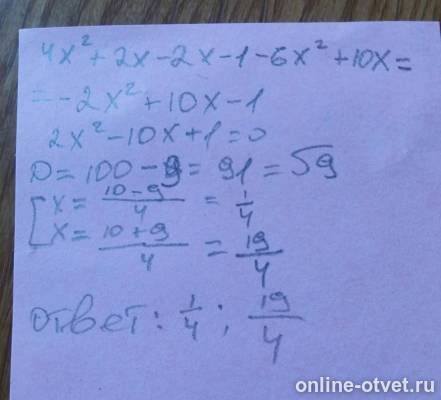 4x² + 2x - 2x - 1 - 6x² + 10x =
= -2x² + 10x - 1
2x² - 10x + 1 = 0
D = 100 - 9 = 91 = √9
[ x = (10 - 9)/4 = 1/4
x = (10 + 9)/4 = 19/4
ответ: 1/4 ; 19/4
online-otvet.ru